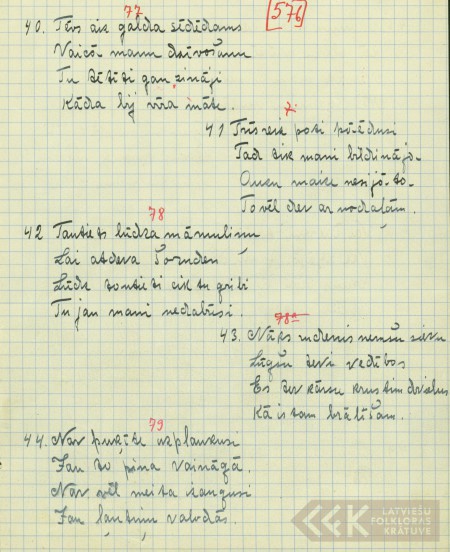 [576]
77
40. Tēvs aiz galda sēdēdams
Vaicā manu dzīvošanu
Tu tētīti gan zināji
Kāda bij vīra māte.
41 Trīsreiz poti
Tad tik mani bildināja.
Outu maize
To vēl dev ar nodaļām.
78
42 Tautiets lūdza māmuliņu
Lai atdeva šoruden
Lūdz tautieti cik tu gribi
Tu jau mani nedabūsi.
78a
43. Nāks rudenis ņemšu sievu
Lūgšu tevi vedības
Es tev kāršu krustim dvieļus
Kā istam brālīšam.
79
44. Nav puķīte uzplaukusi
Jau to pina vaiņagā.
Nav vēl meita izaugusi
Jau ļautiņu valodās.
LATVIEŠU
FOLKLORAS
KRĀTUVE